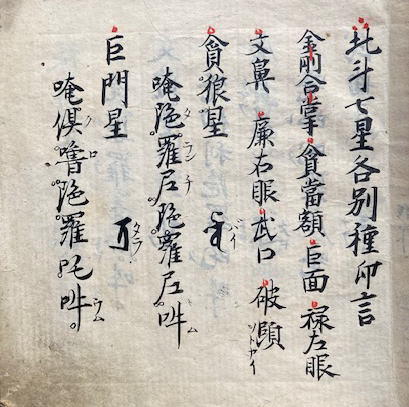 北斗七星各別種印言
金剛合掌貪當額巨面禄左眼
文鼻廉右眼武口破頤
貪狼星 バイ
唵陁羅尼陁羅尼吽
巨門星 タラ
唵倶嚕陁羅吒吽